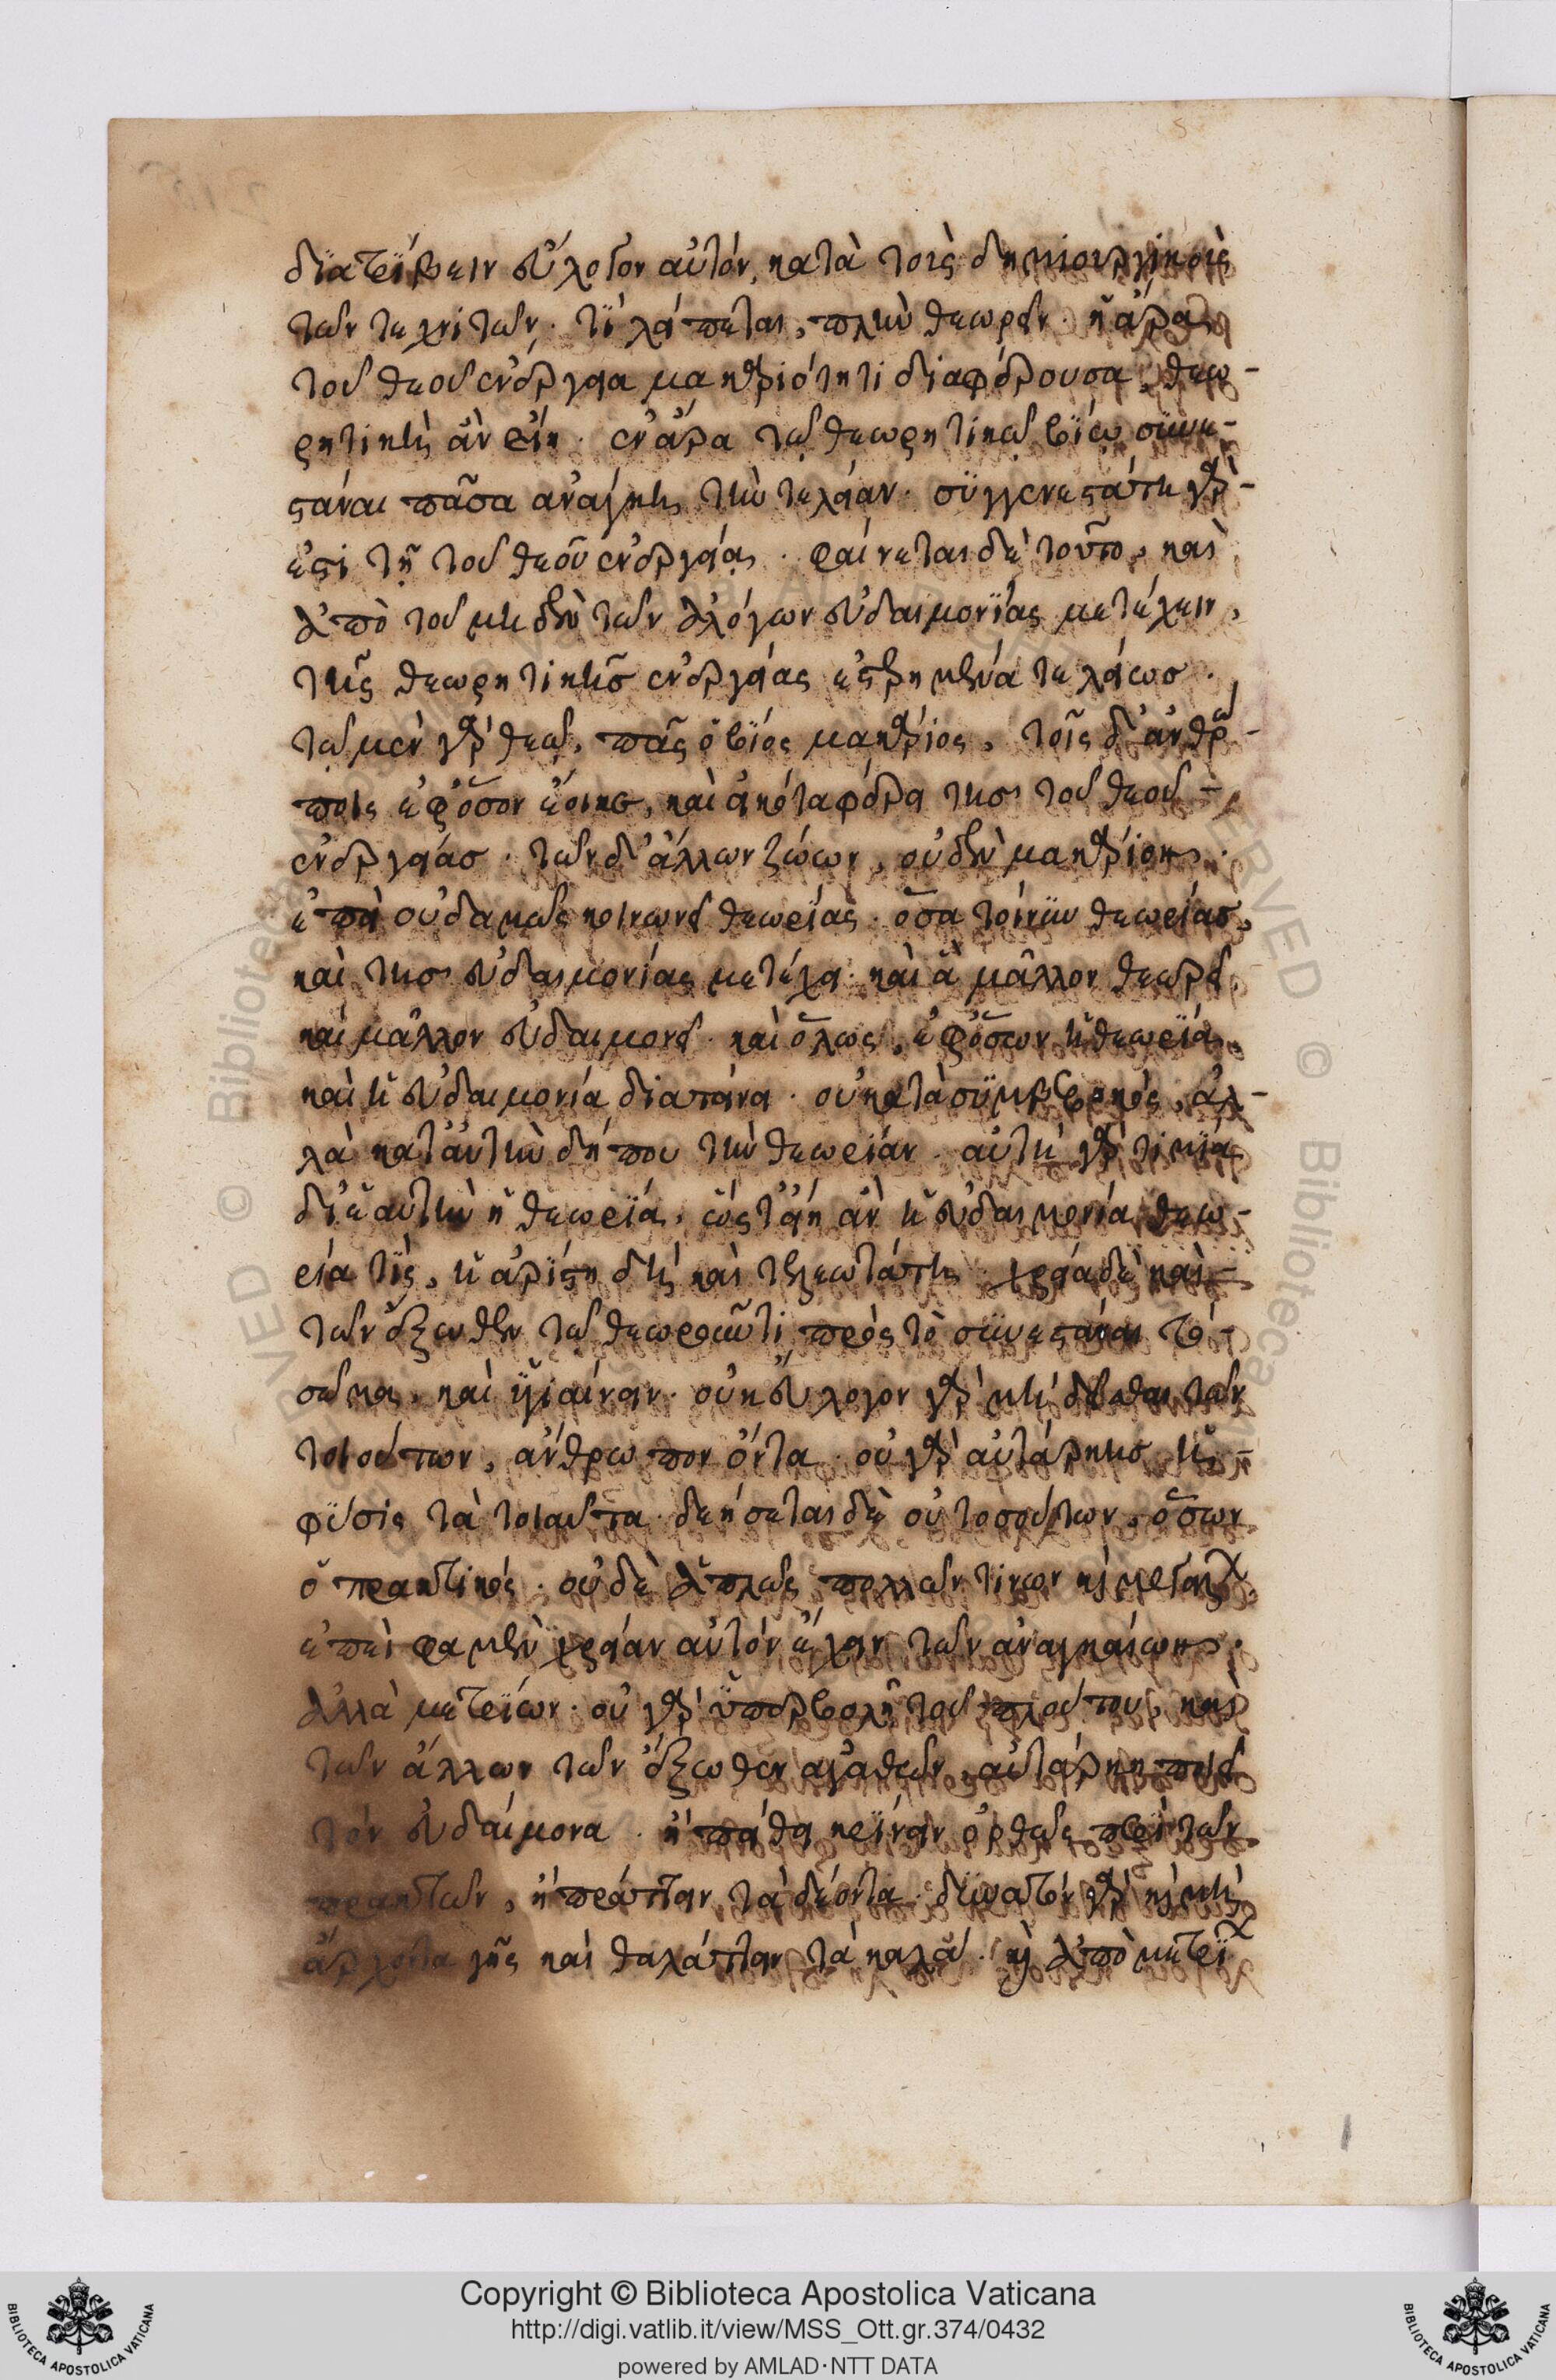 διατρίβειν εὔλογον αὐτόν, κατὰ τοὺς δημιουργικοὺς
τῶν τεχνιτῶν. τί λείπεται, πλὴν θεωρεῖν. ἡ ἄρα
τοῦ θεοῦ ἐνέργεια μακαριότητι διαφέρουσα, θεω-
ρητικὴ ἂν εἴη. ἐν ἄρα τῷ θεωρητικῷ βίῳ συνε-
στάναι πᾶσα ἀνάγκη τὴν τελείαν. συγγενεστάτη γὰρ
ἐστὶ τῇ τοῦ θεοῦ ἐνεργείᾳ. φαίνεται δὲ τοῦτο, καὶ
ἀπὸ τοῦ μηδὲν τῶν ἀλόγων εὐδαιμονίας μετέχειν,
τῆς θεωρητικῆς ἐνεργείας ἐστερημένα τελείως.
τῷ μὲν γὰρ θεῷ, πᾶς ὁ βίος μακάριος, τοῖς δ' ἀνθρώ-
ποις ἐφ' ὅσον ἔοικε, καὶ ἀκόταφέρει τῆς τοῦ θεοῦ
ἐνεργείας. τῶν δ' ἄλλων ζώων, οὐδὲν μακάριον.
ἐπεὶ οὐδαμῶς κοινωνεῖ θεωρίας. ὅσα τοίνυν θεωρίας,
καὶ τῆς εὐδαιμονίας μετέχει. καὶ ἃ μᾶλλον θεωρεῖ,
καὶ μᾶλλον εὐδαιμονεῖ. καὶ ὅλως, ἐφ' ὅσον ἡ θεωρία,
καὶ ἡ εὐδαιμονία διατείνει. οὐ κατὰ συμβεβηκός, ἀλ-
λὰ κατ' αὐτὴν δήπου τὴν θεωρίαν. αὐτὴ γὰρ τιμία
δι' ἑαυτὴν ἡ θεωρία, ὥστ' εἴη ἂν ἡ εὐδαιμονία θεω-
ρία τίς, ἡ ἀρίστη δὴ καὶ τελεωτάτη. χρεία δὲ καὶ
τῶν ἔξωθεν τῷ θεωροῦντι πρὸς τὸ συνεστάναι τὸ
σῶμα, καὶ ὑγιαίνειν. οὐκ εὔλογον γὰρ μὴ δεῖσθαι τῶν
τοιούτων, ἄνθρωπον ὄντα. οὐ γὰρ αὐτάρκης ἡ
φύσις τὰ τοιαῦτα. δεήσεται δὲ οὐ τοσούτων, ὅσων
ὁ πρακτικός. οὐδὲ ἁπλῶς πολλῶν τινων καὶ μεγάλων
ἐπεὶ φαμὲν χρείαν αὐτὸν ἔχειν τῶν ἀναγκαίων.
ἀλλὰ μετρίων. οὐ γὰρ ὑπερβολὴ τοῦ πλούτου, καὶ
τῶν ἄλλων τῶν ἔξωθεν ἀγαθῶν, αὐτάρκη ποιεῖ
τὸν εὐδαίμονα. ἢ πείθει κρίνειν ὀρθῶς περὶ τῶν
πρακτῶν, ἢ πράττειν τὰ δέοντα. δυνατὸν γὰρ καὶ μὴ
ἄρχοντα γῆς καὶ θαλάττης τὰ καλά. καὶ ἀπὸ μετρί